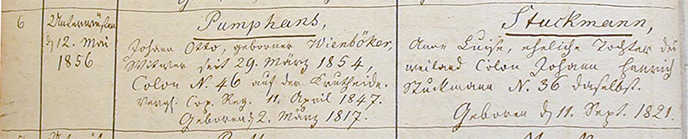 6
Unterwüsten
d 12. Mai
1856
Pumphans,
Johann Otto, geborner Wienböker,
Witwer seit 29. März 1854,
Colon N. 46 auf der Krutheide.
vergl. Cop. Reg. 11 April 1847.
Geboren d 2. März 1817.
Stuckmann,
Anne Luise, eheliche Tochter des
weiland Colon Johann Henrich
Stuckmann N. 36 daselbst.
Geboren d 11. Sept. 1821.